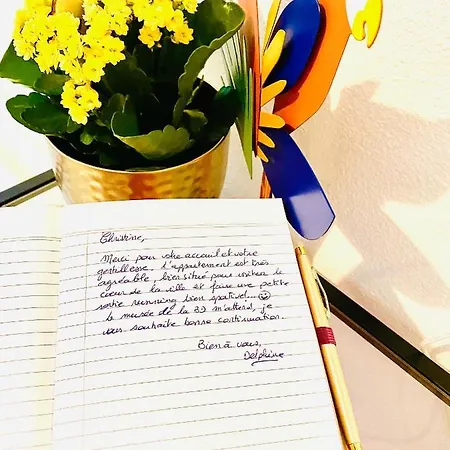 Christine,
Merci pour votre accueil et votre
gentillesse. L'appartement est très
agréable, bien situé pour visiter le
cœur de la ville et faire une petite
sortie running bien sportive!...
le musée de la BD m'attend, je
vous souhaite bonne continuation.
Bien à vous,
Delphine